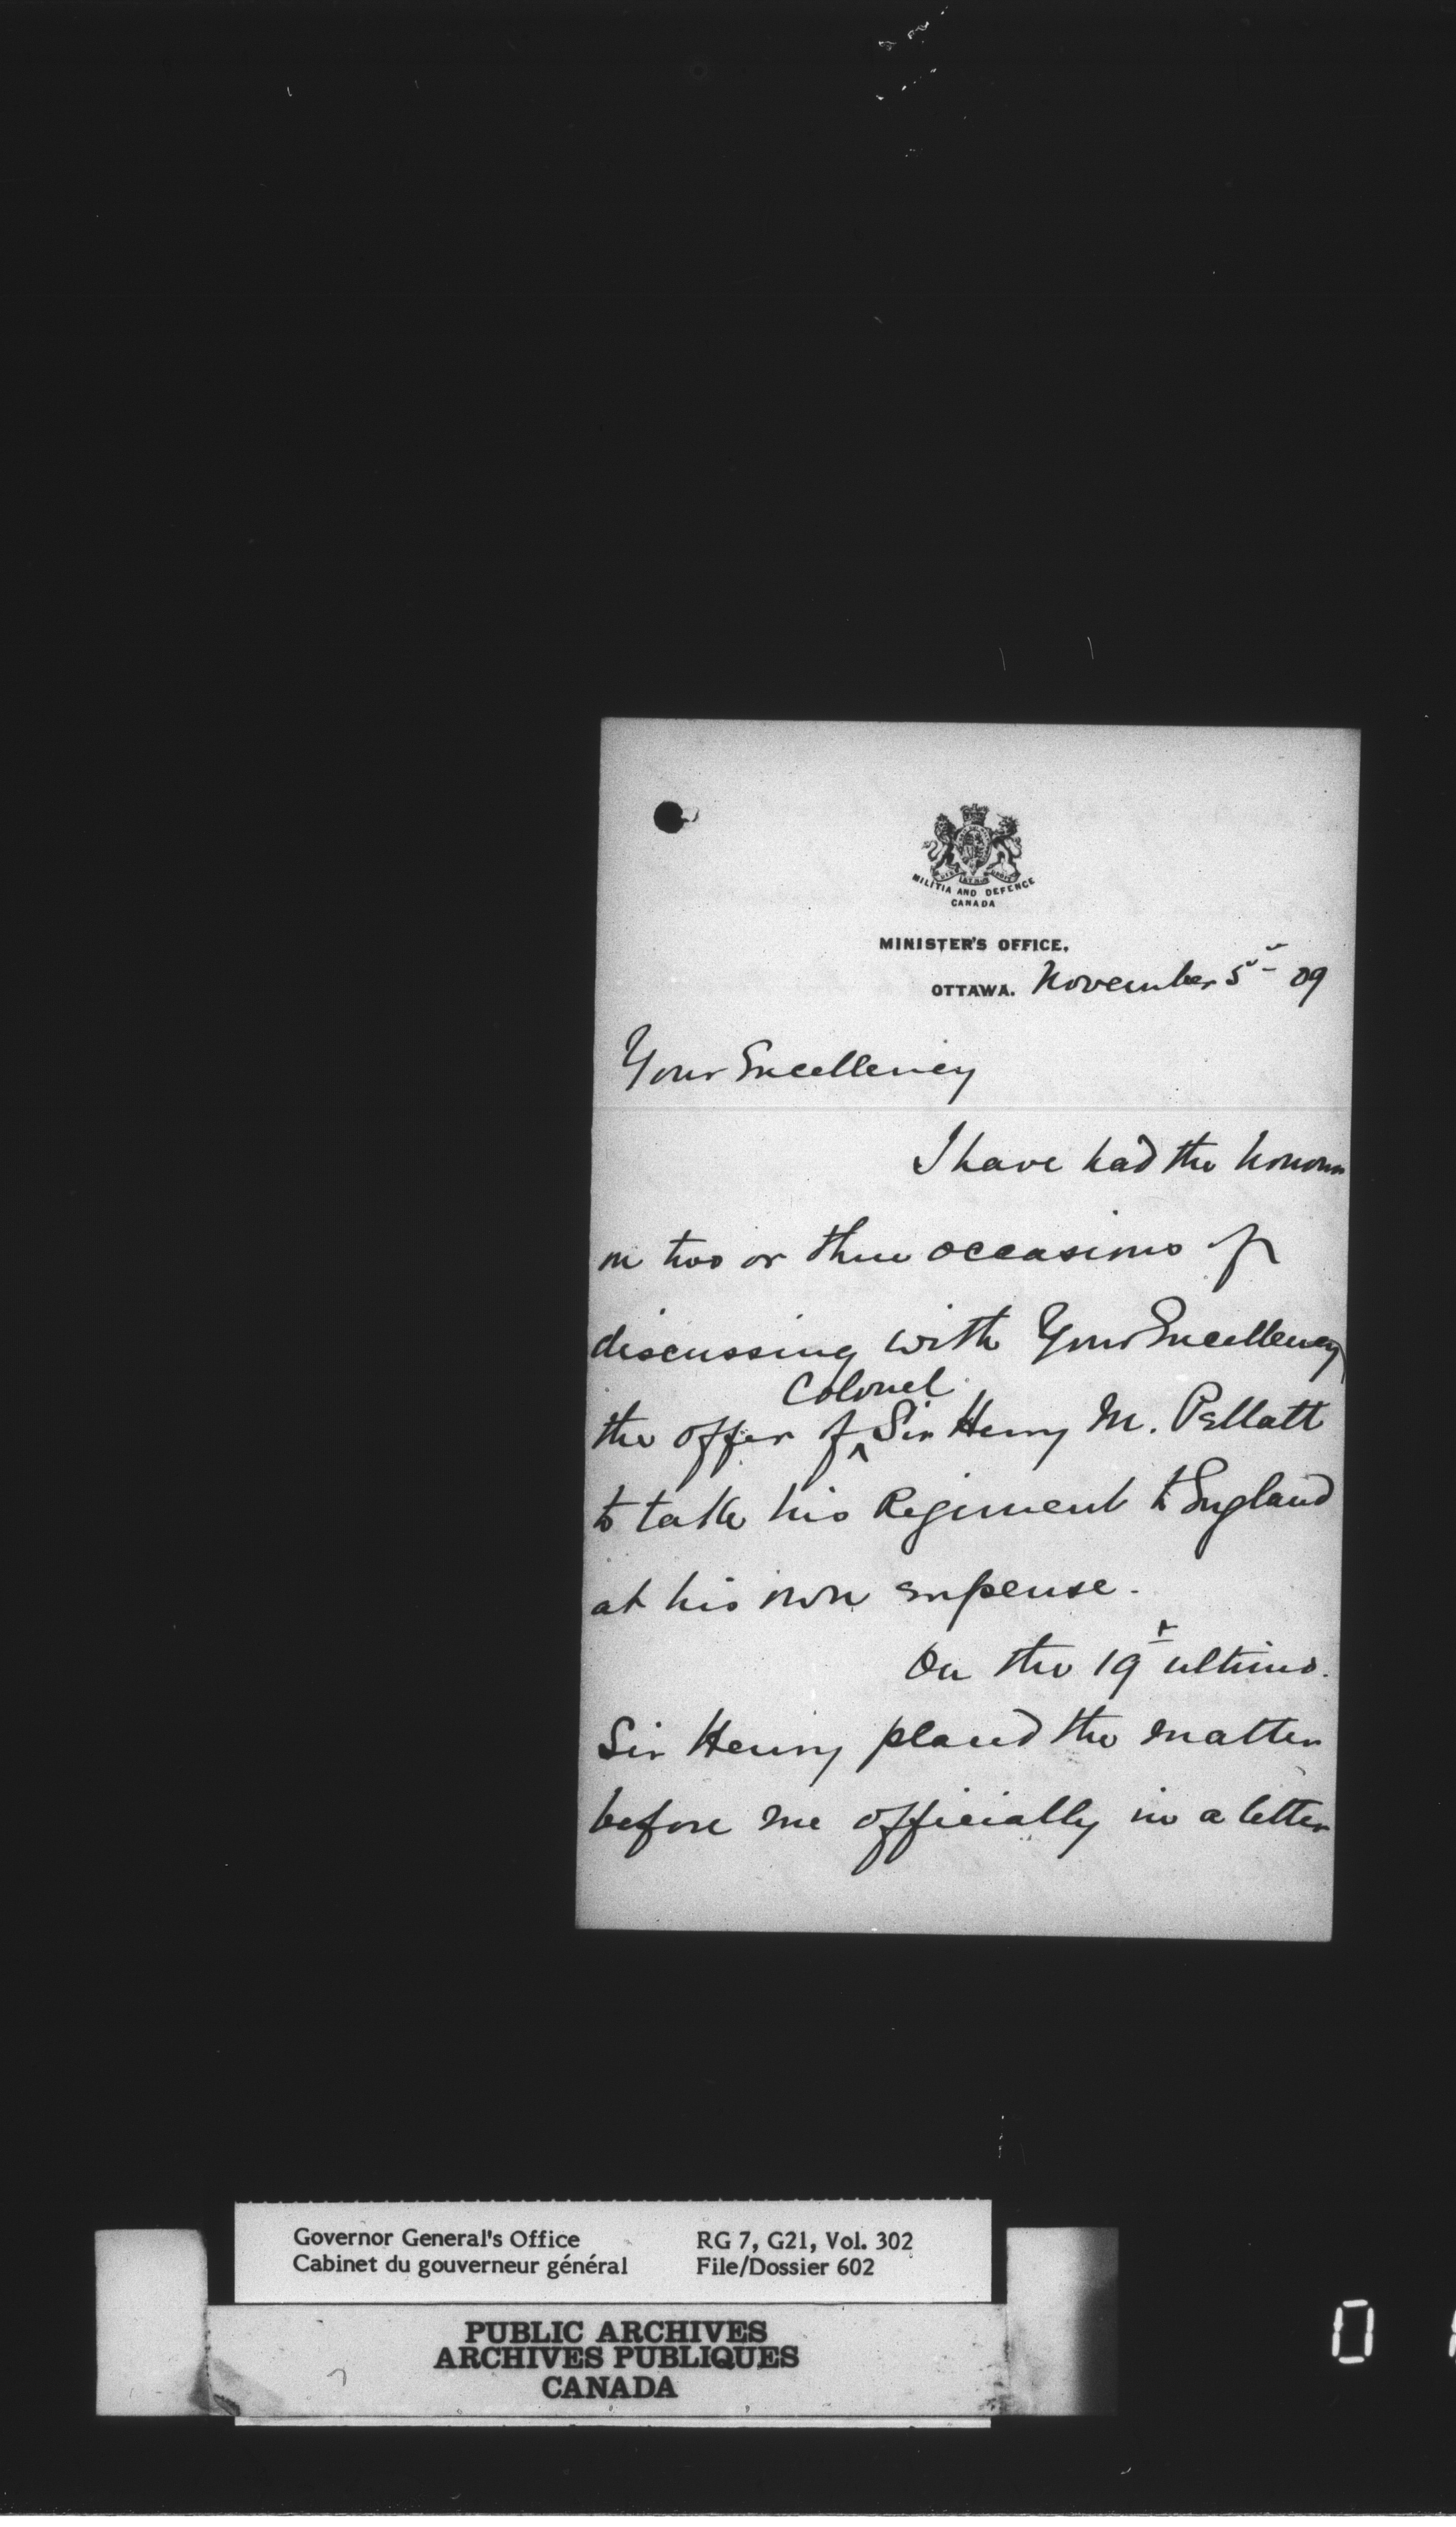 MILITIA AND DEFENCE
CANADA
MINISTER'S OFFICE,
OTTAWA. November 5 - 09
Your Excellency
I have had the honour
on two or three occasions of
discussing with Your Excellency
Colonel
the offer of ^ Sir Henry M. Pellatt
to take his Regiment to England
at his own expense.
On the 19th ultimo.
Sir Henry placed the matter
before me officially in a letter
Governor General's Office RG 7, G21, Vol. 302
Cabinet du gouverneur général File/Dossier 602
PUBLIC ARCHIVES
ARCHIVES PUBLIQUES
CANADA
0